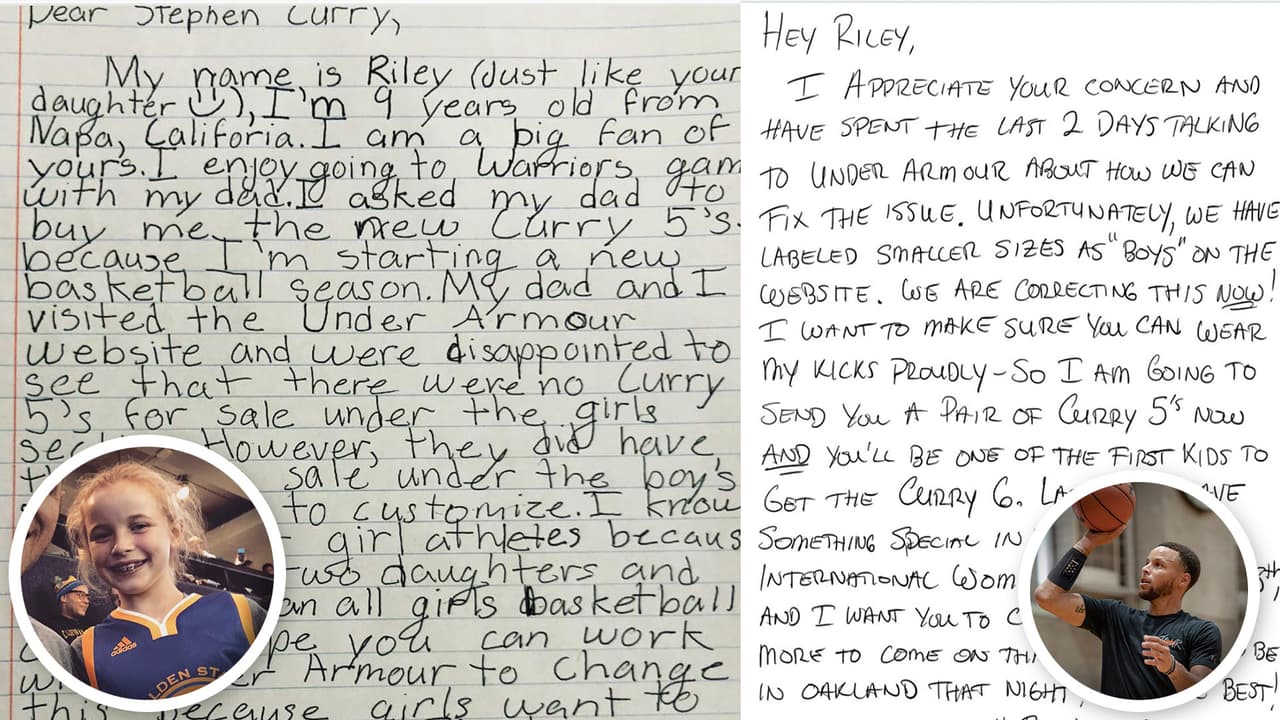 Dear Stephen Curry,
My name is Riley (Just like your
daughter ☺), I'm 9 years old from
Napa, Califoria. I am a big fan of
yours. I enjoy going to Warriors gam
with my dad. I asked my dad to
buy me the new Curry 5's.
because I'm starting a new
basketball season. My dad and I
visited the Under Armour
website and were disappointed to
see that there were no Curry
5's for sale under the girls
sec However, they did have
sale under the boy's
to customize. I know
girl athletes becaus
two daughters and
an all girls basketball
pe you can work
Armour to change
this because girls want to
adidas
LDEN ST
HEY RILEY,
I APPRECIATE YOUR CONCERN AND
HAVE SPENT THE LAST 2 DAYS TALKING
TO UNDER ARMOUR ABOUT HOW WE CAN
FIX THE ISSUE. UNFORTUNATELY, WE HAVE
LABELED SMALLER SIZES AS "BOYS" ON THE
WEBSITE. WE ARE CORRECTING THIS NOW!
I WANT TO MAKE SURE YOU CAN WEAR
MY KICKS PROUDLY - SO I AM GOING TO
SEND YOU A PAIR OF CURRY 5's NOW
AND YOU'LL BE ONE OF THE FIRST KIDS TO
GET THE CURRY 6. LA AVE
SOMETHING SPECIAL IN
INTERNATIONAL WOM 8th,
AND I WANT YOU TO C
MORE TO COME ON THI BE
IN OAKLAND THAT NIGHT, BEST!